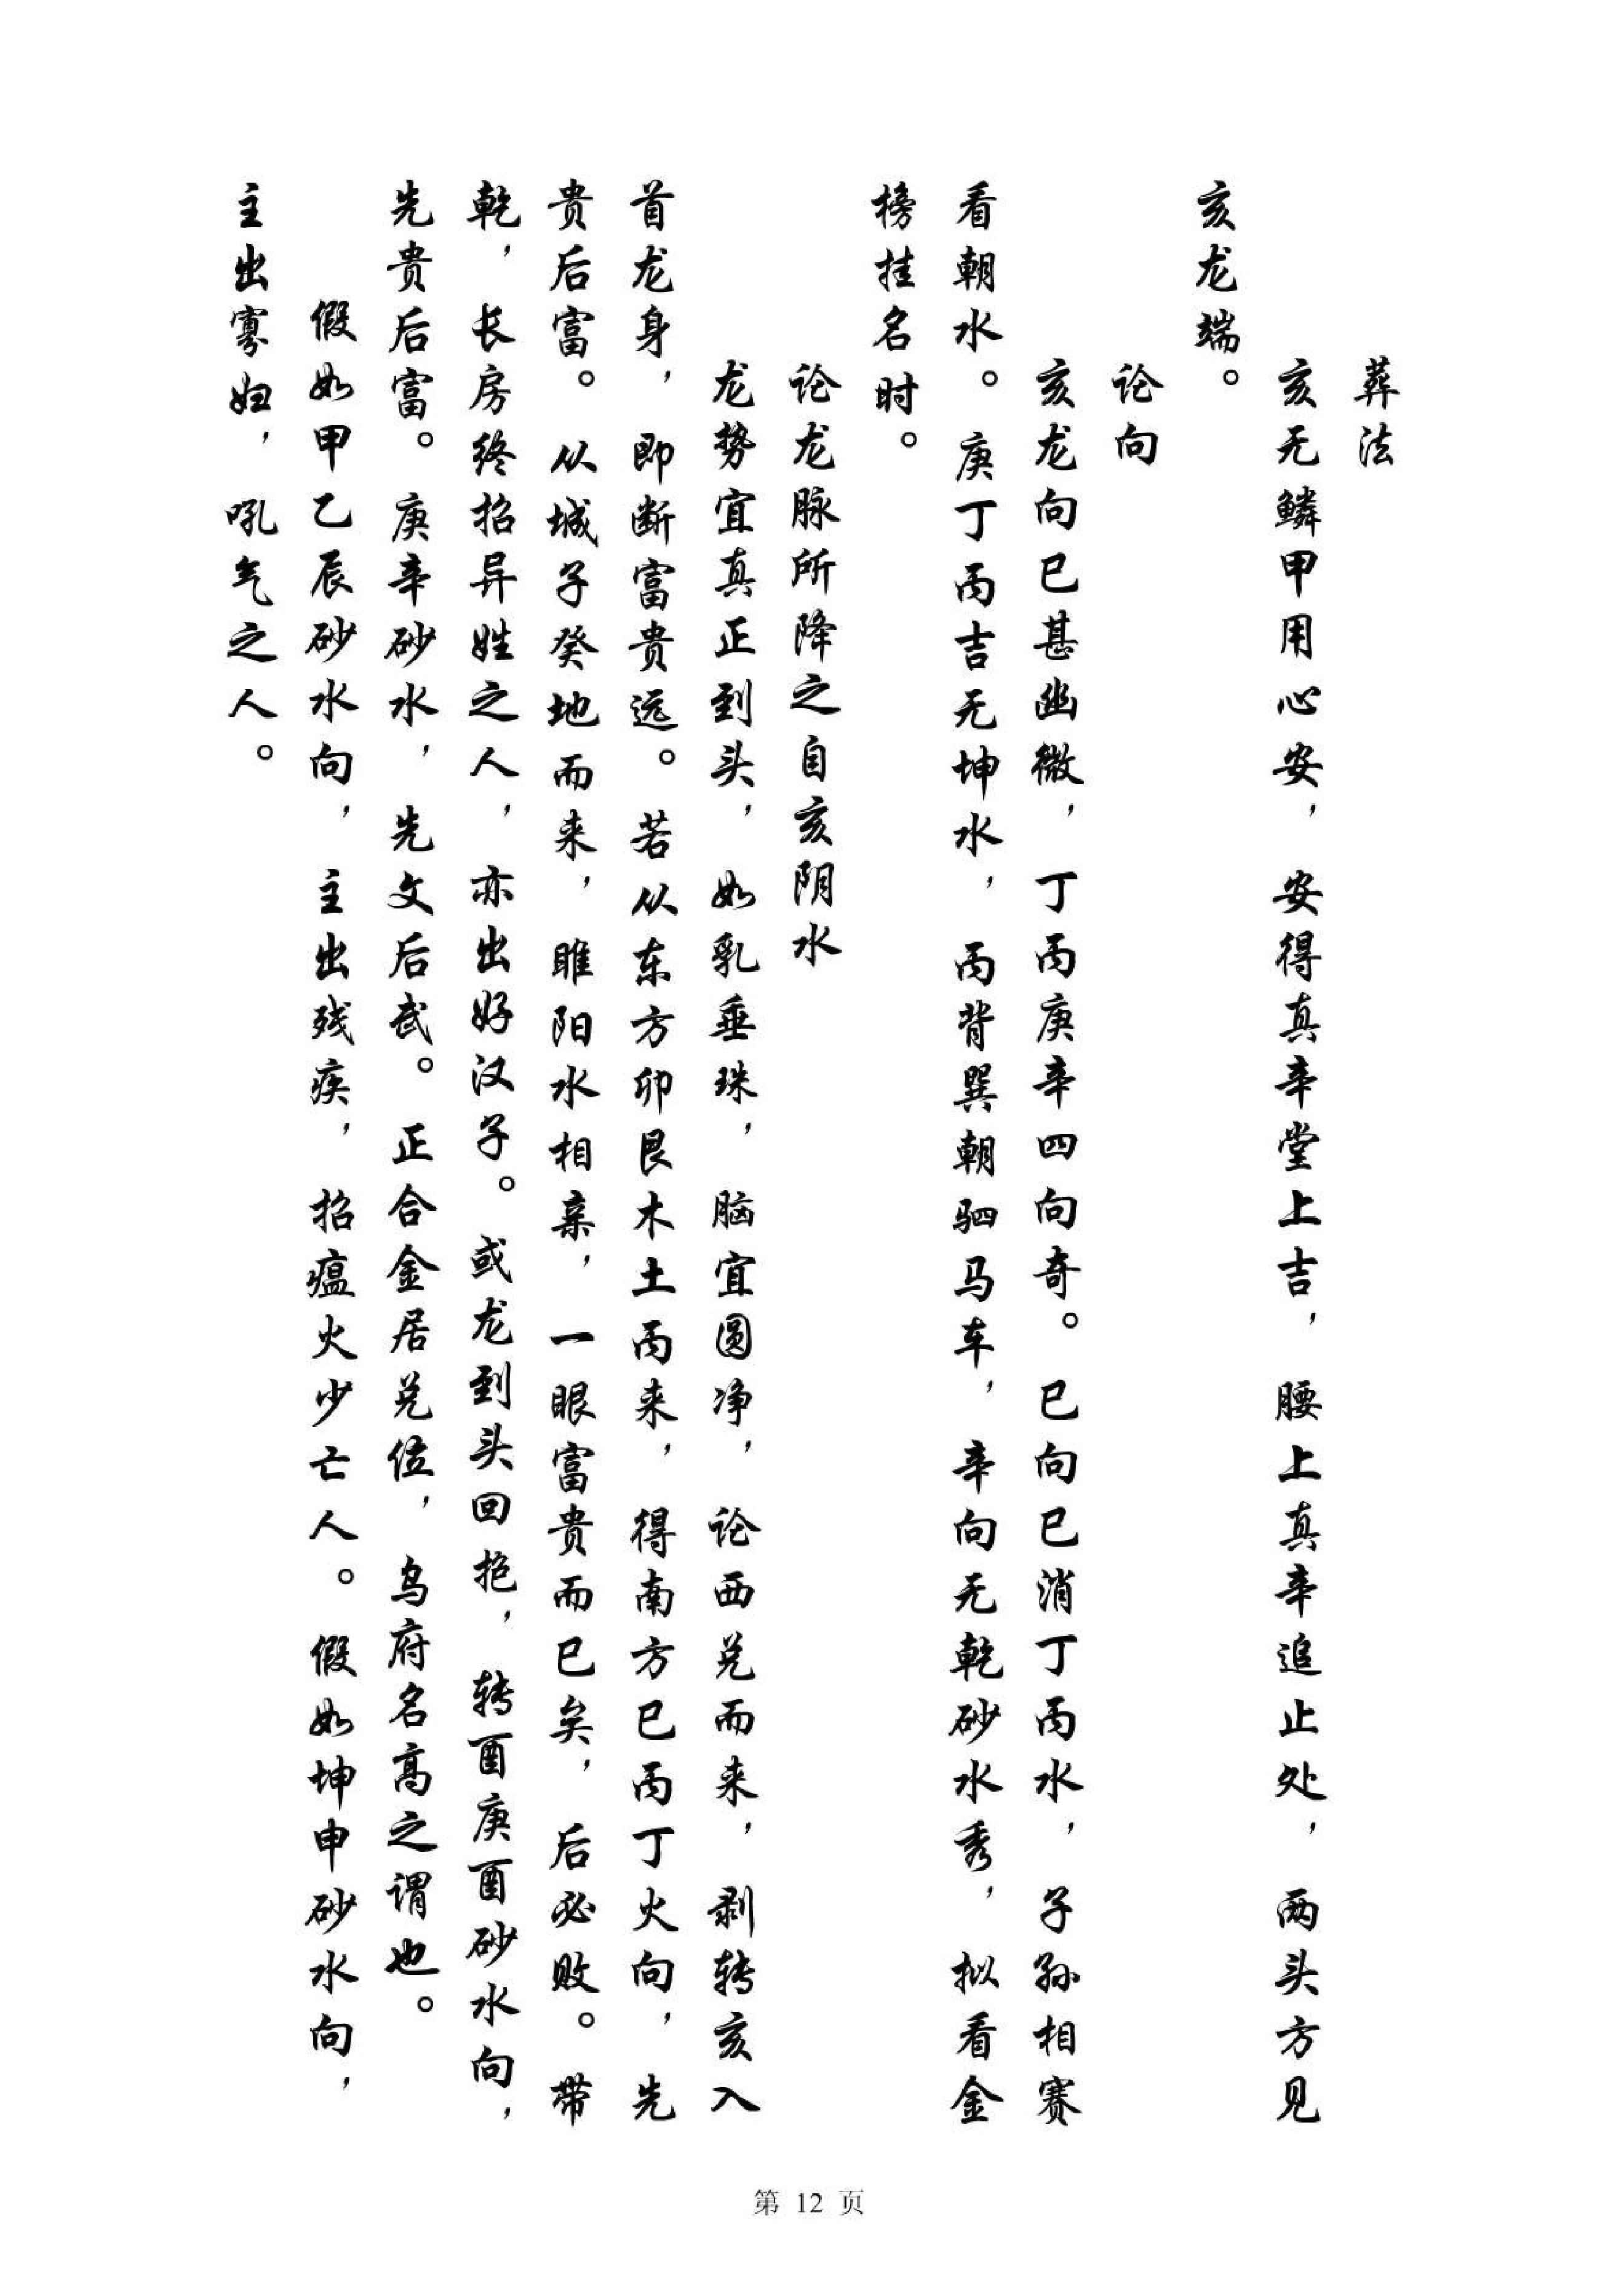 葬法
亥无鳞甲用心安，安得真辛堂上吉，腰上真辛追止处，两头方见
亥龙端。
论向
亥龙向巳甚幽微，丁丙庚辛四向奇。巳向巳消丁丙水，子孙相赛
看朝水。庚丁丙吉无坤水，丙背巽朝驷马车，辛向无乾砂水秀，拟看金
榜挂名时。
论龙脉所降之自亥阴水
龙势宜真正到头，如乳垂珠，脑宜圆净，论西兑而来，剥转亥入
首龙身，即断富贵远。若从东方卯艮木土丙来，得南方巳丙丁火向，先
贵后富。从城子癸地而来，睢阳水相亲，一眼富贵而已矣，后必败。带
乾，长房终招异姓之人，亦出好汉子。或龙到头回抱，转酉庚酉砂水向，
先贵后富。庚辛砂水，先文后武。正合金居兑位，乌府名高之谓也。
假如甲乙辰砂水向，主出残疾，招瘟火少亡人。假如坤申砂水向，
主出寡妇，吼气之人。
第 12 页